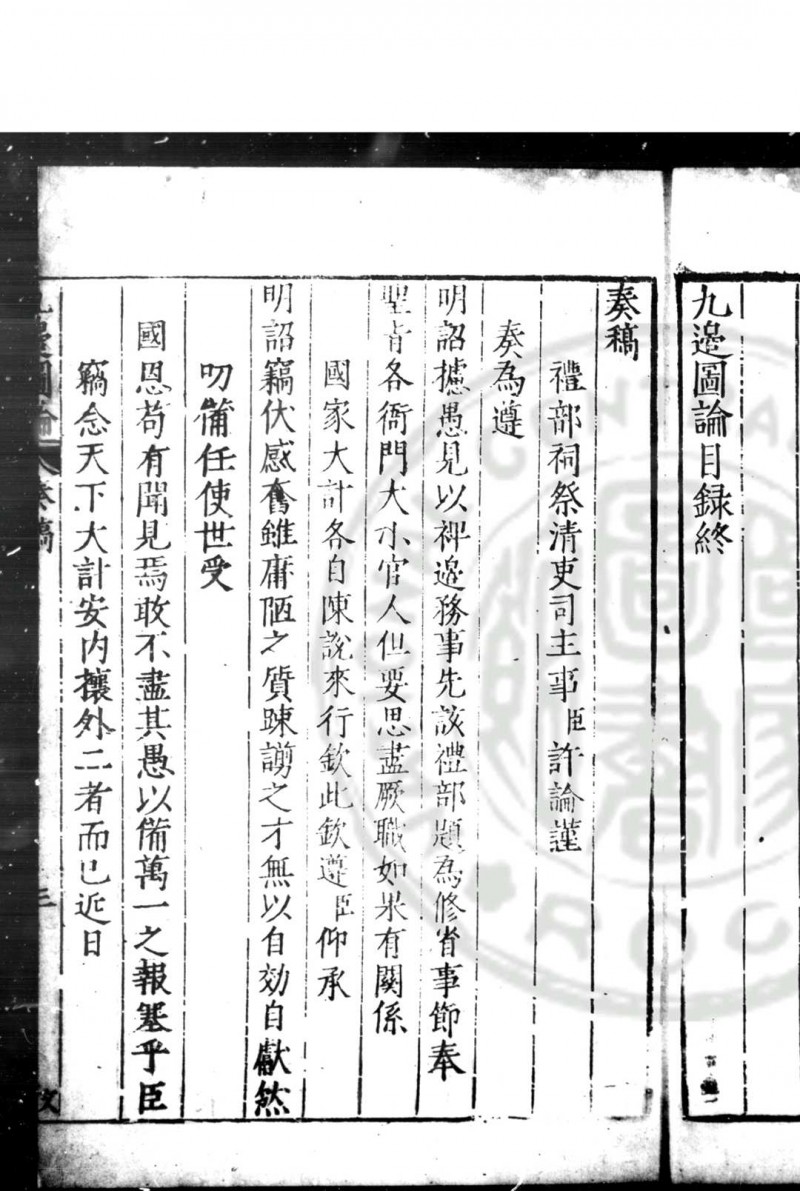 九邊圖論目録終
奏稿
禮部祠祭清吏司主事臣許論謹
奏為遵
明詔攄愚見以裨邊務事先該禮部題為修省事節奉
聖旨各衙門大小官人但要思盡厥職如果有關係
國家大計各自陳說來行欽此欽遵臣仰承
明詔竊伏感奮雖庸陋之質踈謭之才無以自効自獻然
叨備任使世受
國恩苟有聞見焉敢不盡其愚以備萬一之報塞乎臣
竊念天下大計安内攘外二者而已近日
九邊圖論 奏稿 三